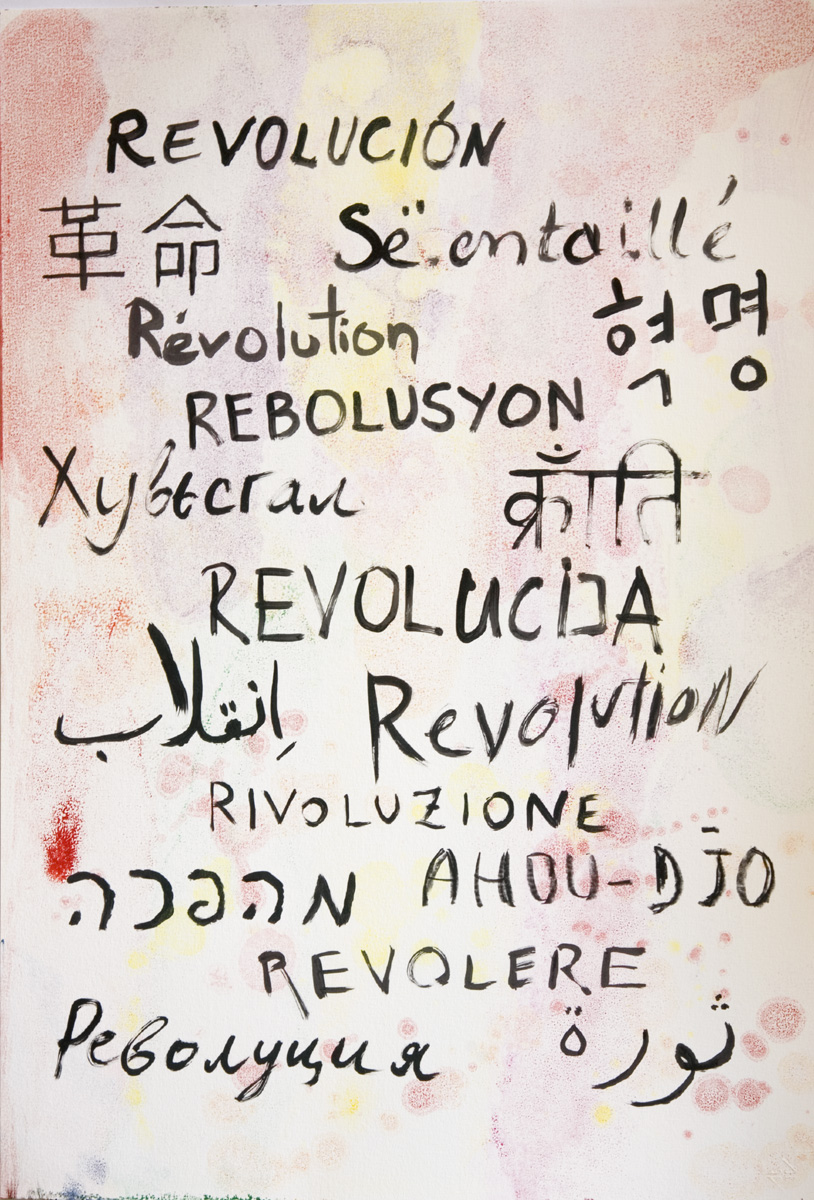 REVOLUCIÓN
革命 Së.entaillé
Révolution 혁명
REBOLUSYON
Хувьсгал क्राँति
REVOLUCIJA
اِنقلاب Revolution
RIVOLUZIONE
מהפכה AHOU-DJO
REVOLERE
Революция ثورة